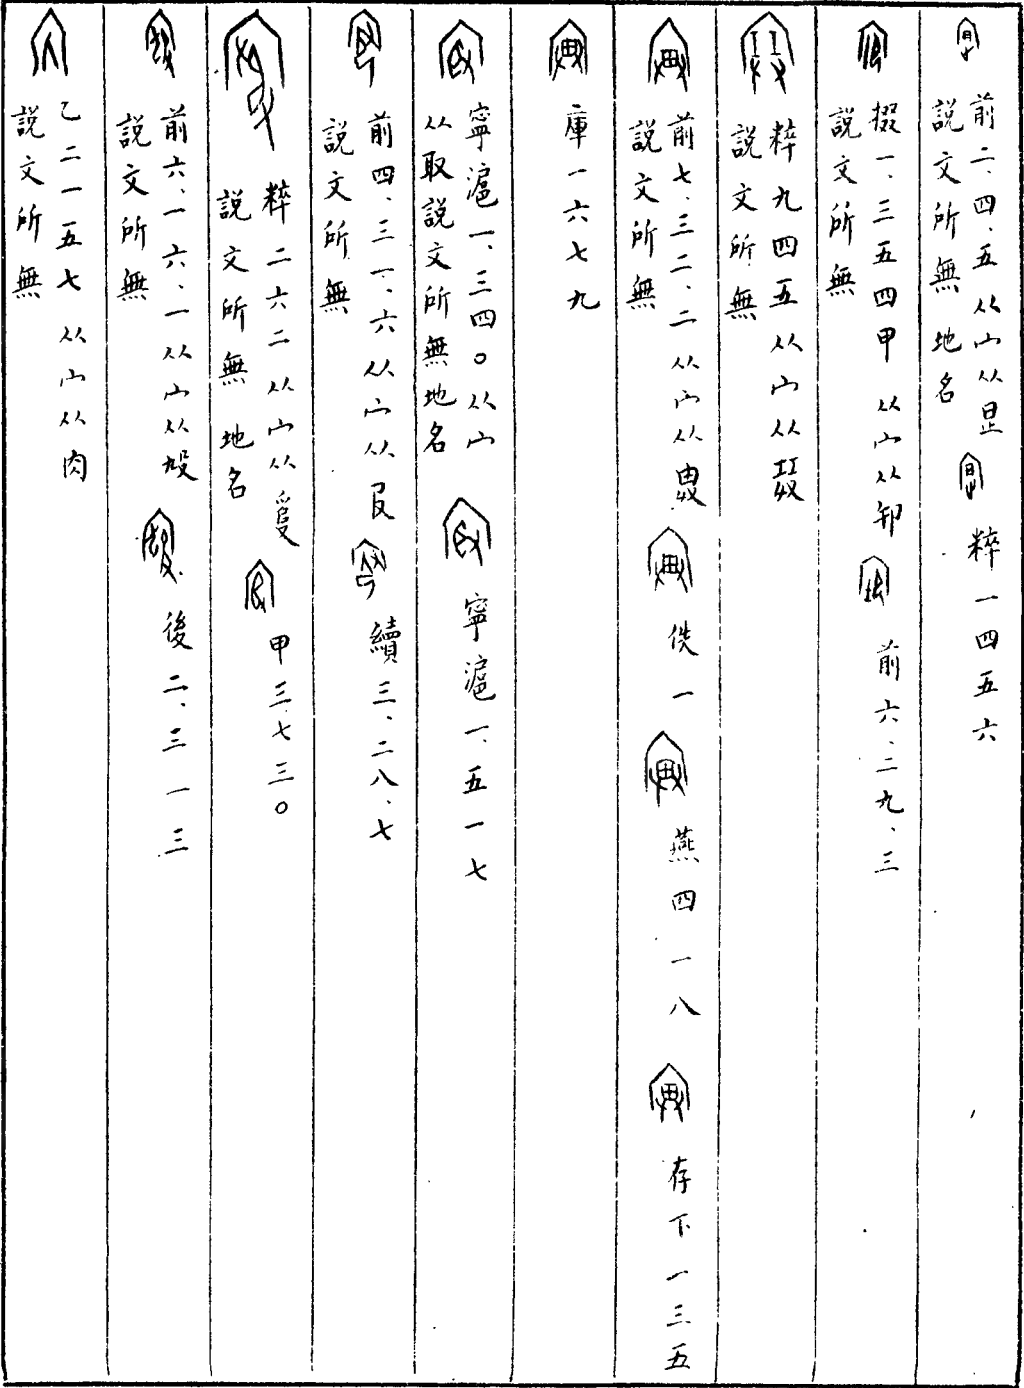 前二·四·五 从宀从昰
説文所無 地名
粹一四五六
掇一·三五四甲 从宀从卸
説文所無
前六·二九·三
粹九四五 从宀从
説文所無
前七·三二·二 从宀从
説文所無
佚一
燕四一八
存下一三五
庫一六七九
寧滬一·三四〇 从宀
从取説文所無地名
寧滬一·五一七
前四·三一·六 从宀从𠬝
説文所無
續三·二八·七
粹二六二 从宀从
説文所無 地名
甲三七三〇
前六·一六·一 从宀从
説文所無
後二·三一·三
乙二一五七 从宀从肉
説文所無